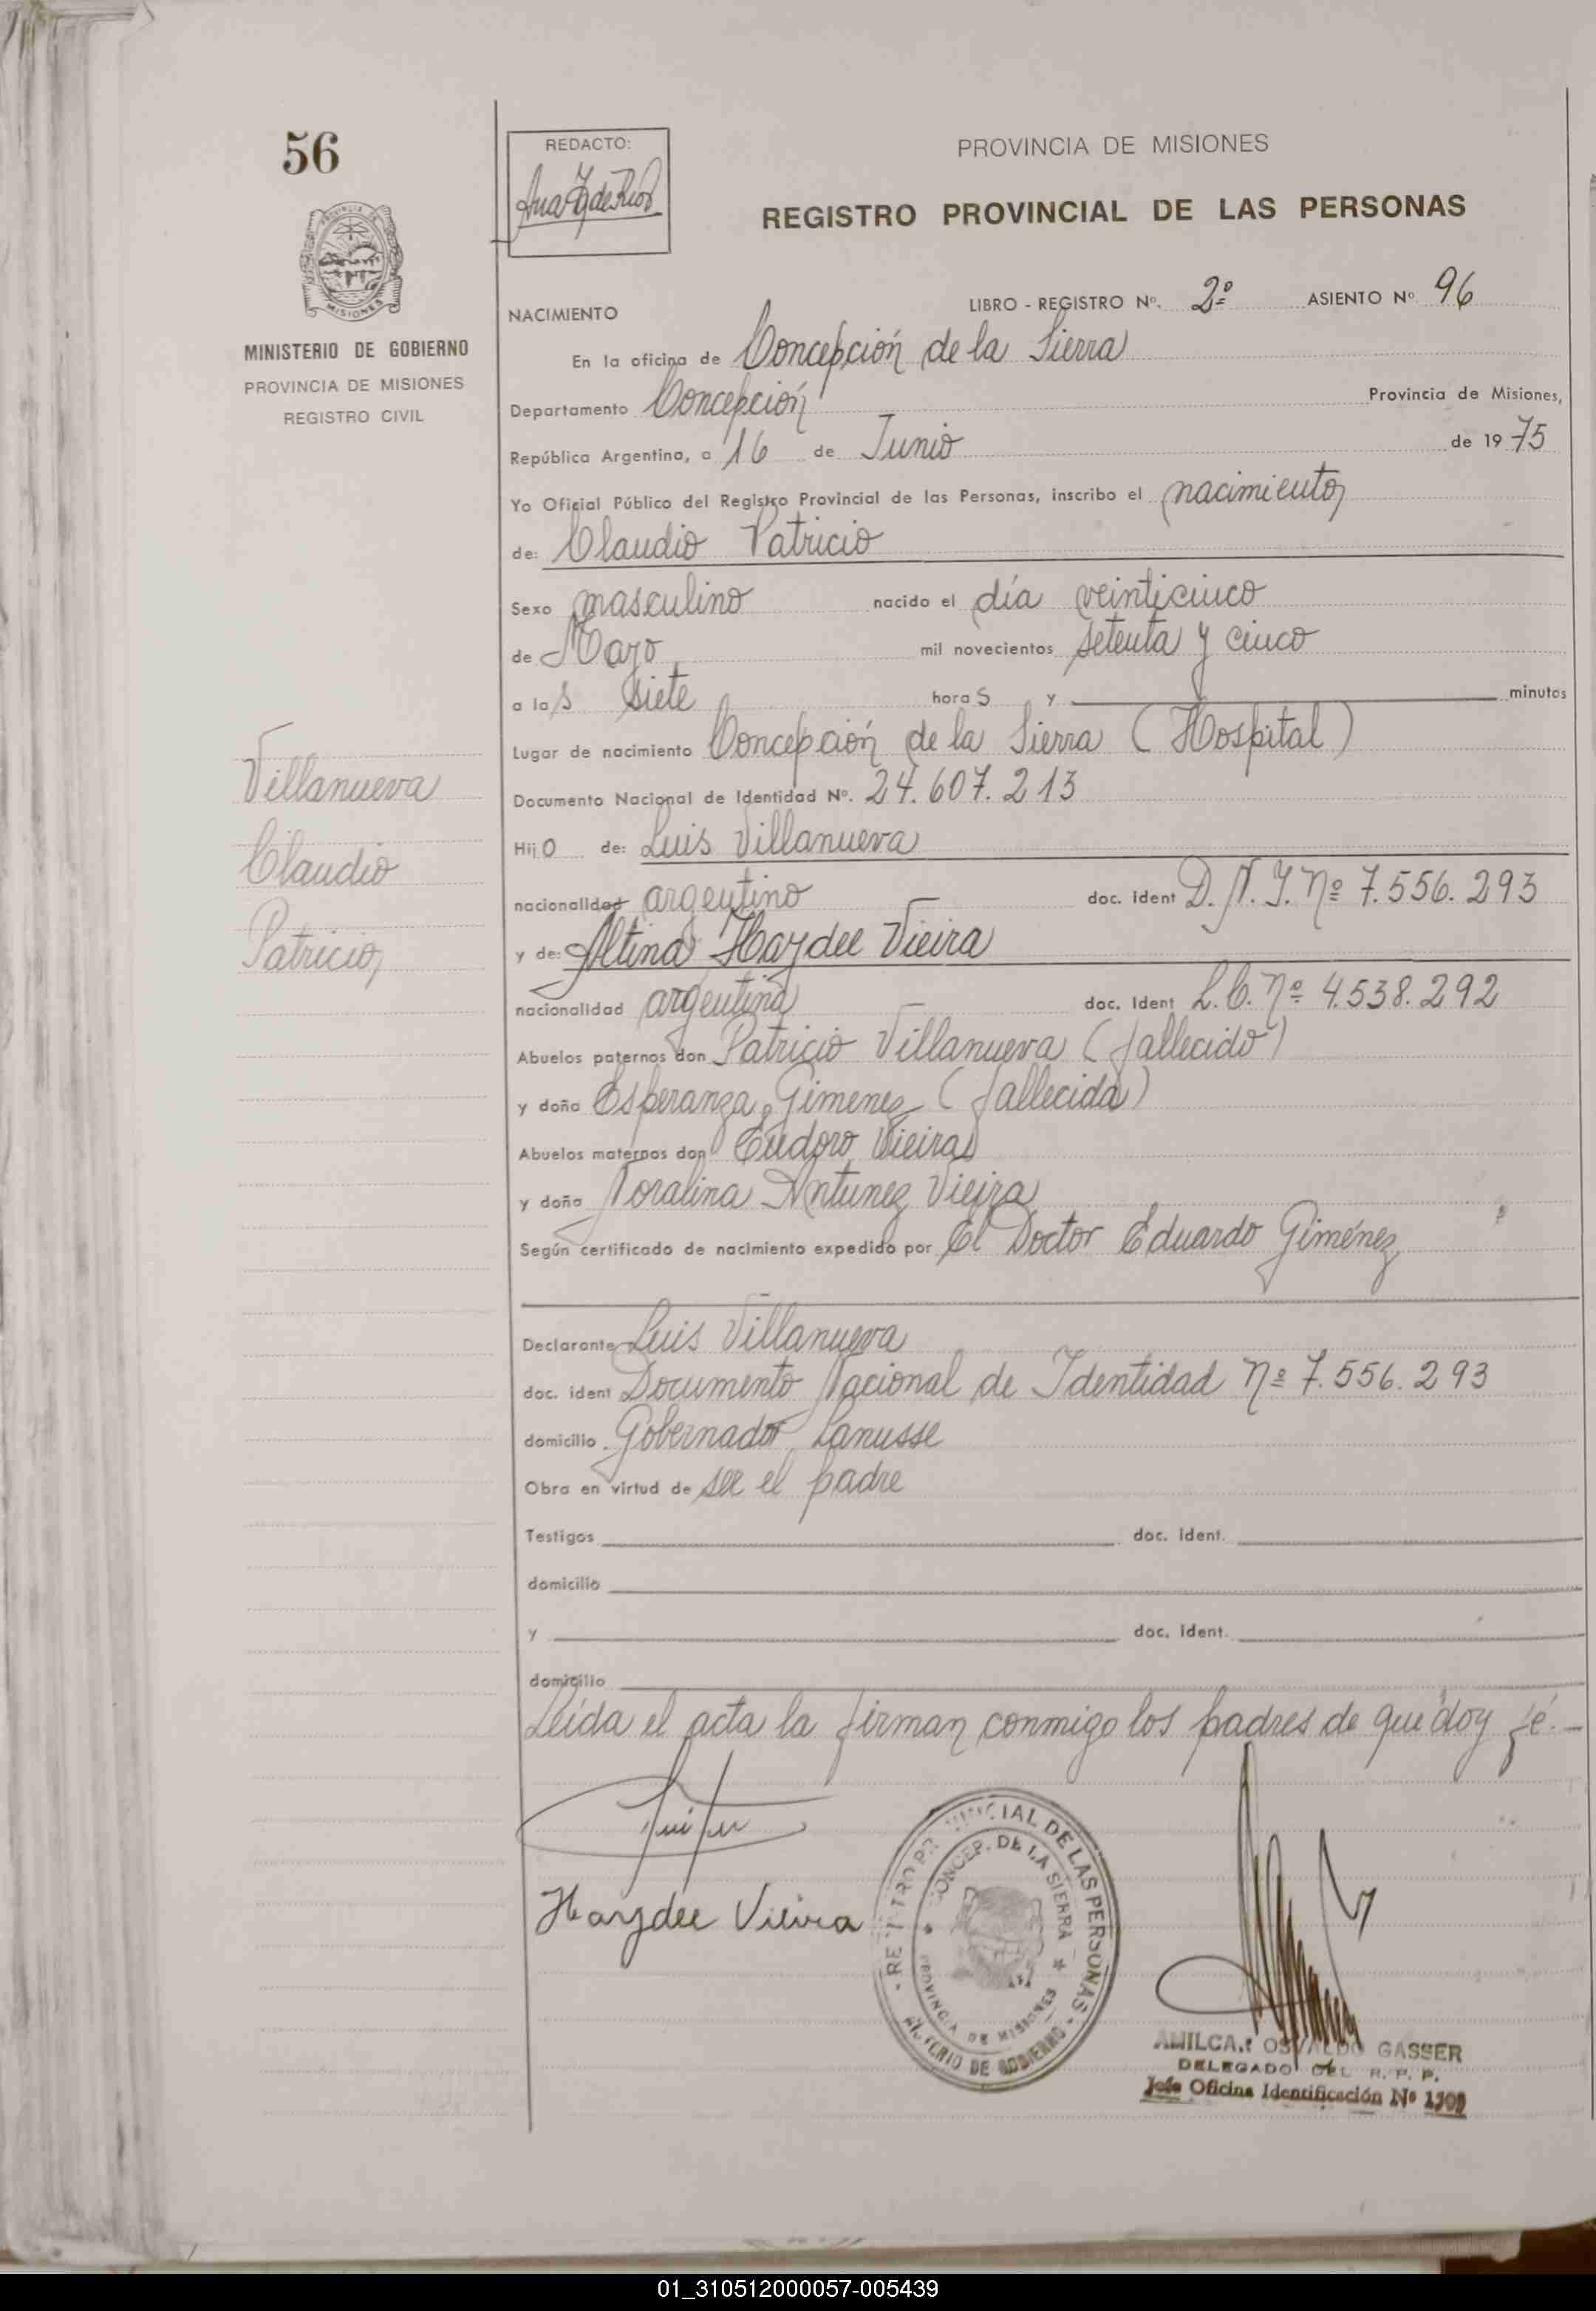 56
REDACTO:
Ana Z de Rios
PROVINCIA DE MISIONES
REGISTRO PROVINCIAL DE LAS PERSONAS
MISIONES
MINISTERIO DE GOBIERNO
PROVINCIA DE MISIONES
REGISTRO CIVIL
NACIMIENTO
LIBRO - REGISTRO Nº. 2º ASIENTO Nº 96
En la oficina de Concepción de la Sierra
Departamento Concepción Provincia de Misiones,
República Argentina, a 16 de Junio de 1975
Yo Oficial Público del Registro Provincial de las Personas, inscribo el nacimiento
de: Claudio Patricio
Sexo masculino nacido el día veinticinco
de Mayo mil novecientos setenta y cinco
a las siete horas y minutos
Lugar de nacimiento Concepción de la Sierra (Hospital)
Documento Nacional de Identidad Nº. 24.607.213
Villanueva
Claudio
Patricio
Hijo de: Luis Villanueva
nacionalidad argentino doc. ident D.N.I. Nº 7.556.293
y de: Altina Haydee Vieira
nacionalidad argentina doc. ident L.C. Nº 4.538.292
Abuelos paternos don Patricio Villanueva (fallecido)
y doña Esperanza Gimenez (fallecida)
Abuelos maternos don Eudoro Vieira
y doña Noralina Antunez Vieira
Según certificado de nacimiento expedido por El Doctor Eduardo Giménez
Declarante Luis Villanueva
doc. ident Documento Nacional de Identidad Nº 7.556.293
domicilio Gobernador Lanusse
Obra en virtud de ser el padre
Testigos doc. ident.
domicilio
y doc. ident.
domicilio
Leída el acta la firman conmigo los padres de que doy fé.-
Haydee Vieira
REGISTRO PROVINCIAL DE LAS PERSONAS - MINISTERIO DE GOBIERNO -
CONCEP. DE LA SIERRA * PROVINCIA DE MISIONES *
AMILCAR OSVALDO GASSER
DELEGADO DEL R. P. P.
Jefe Oficina Identificación Nº 1909
01_310512000057-005439